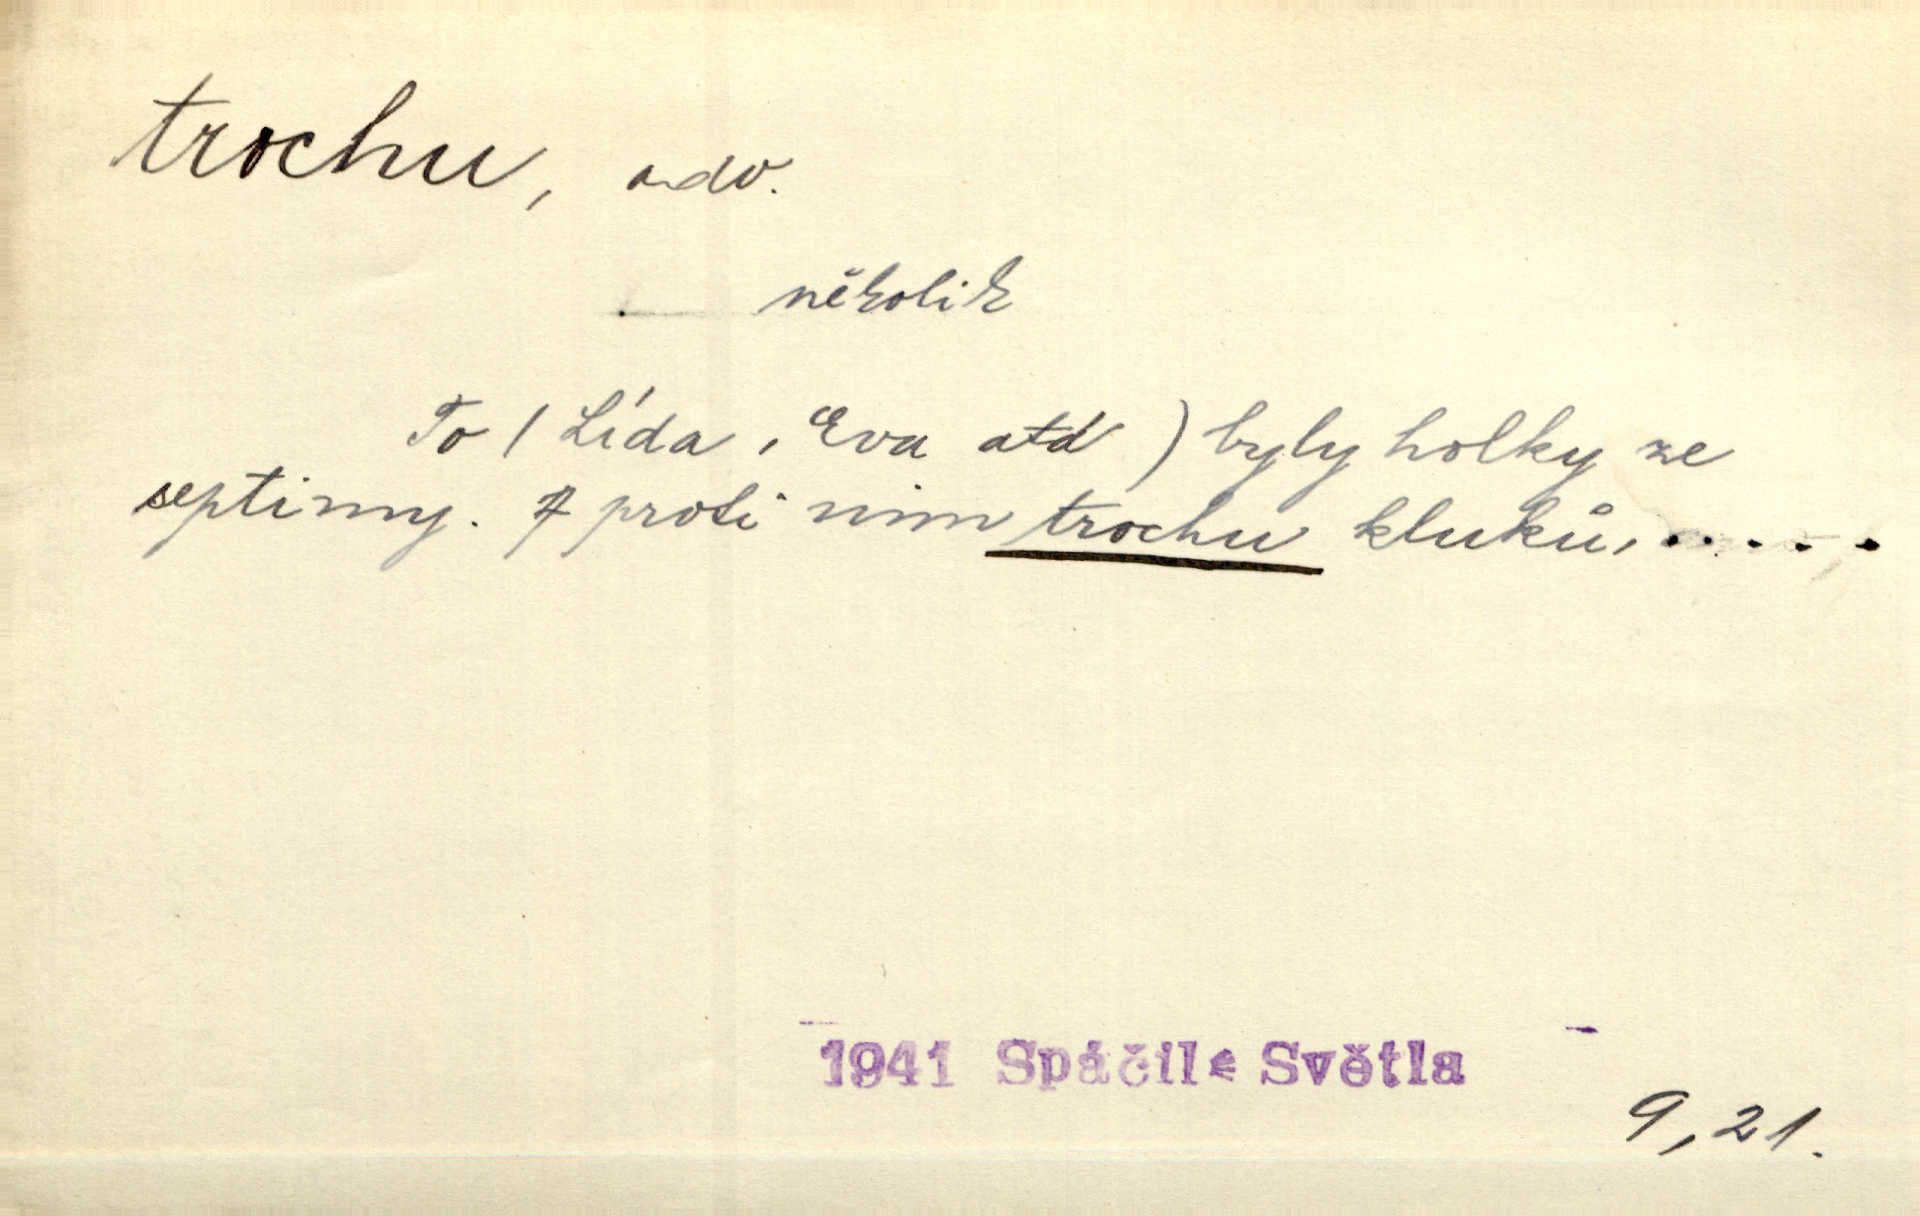 trochu, adv.
několik
To (Lída, Eva atd) byly holky ze
septimy. A proti nim trochu kluků, .....
1941 Spáčil Světla
9, 21.